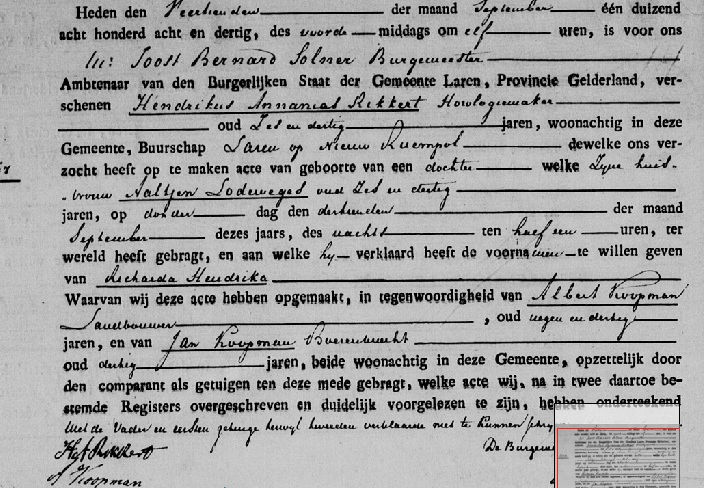 Heden den Veertienden der maand September één duizend
acht honderd acht en dertig, des voorde middags om elf uren, is voor ons
Mr: Joost Bernard Solner Burgemeester
Ambtenaar van den Burgerlijken Staat der Gemeente Laren, Provincie Gelderland, ver-
schenen Hendrikus Annanias Rekkert Horologiemaker
oud Zes en dertig jaren, woonachtig in deze
Gemeente, Buurschap Laren op Nieuw dewelke ons ver-
zocht heeft op te maken acte van geboorte van een dochter welke Zijne huis-
vrouw Aaltjen Lodeweges oud Zes en dertig
jaren, op donder dag den dertienden der maand
September dezes jaars, des nachts ten half een uren, ter
wereld heeft gebragt, en aan welke hy verklaard heeft de voornamen te willen geven
van Richarda Hendrika
Waarvan wij deze acte hebben opgemaakt, in tegenwoordigheid van Albert Koopman
Landbouwer , oud negen en dertig
jaren, en van Jan Koopman Boerenknecht
oud dertig jaren, beide woonachtig in deze Gemeente, opzettelijk door
den comparant als getuigen ten deze mede gebragt, welke acte wij, na in twee daartoe be-
stemde Registers overgeschreven en duidelijk voorgelezen te zijn, hebben onderteekend
Met de Vader en eersten getuige terwyl tweeden verklaarde niet te kunnen schry
H A Rekkert De Burgeme
A Koopman